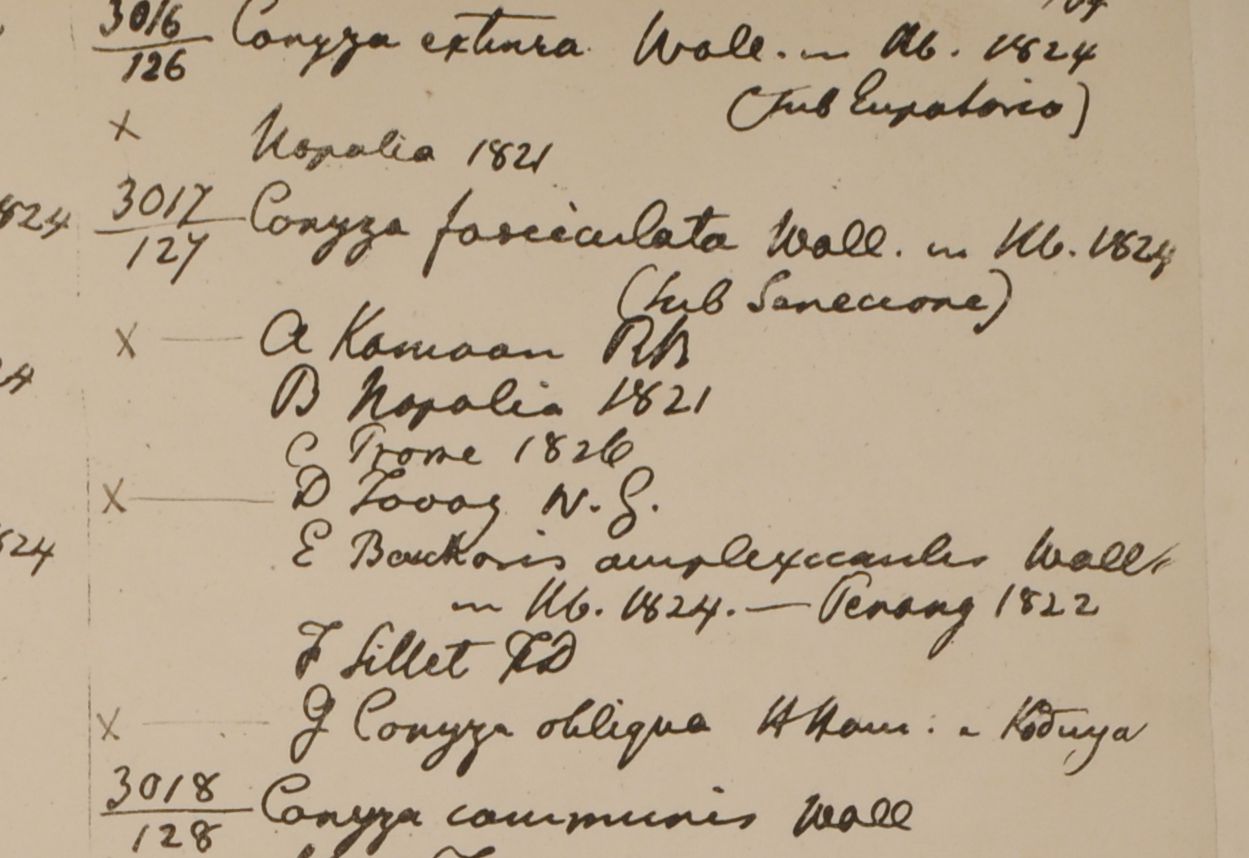 3016 Conyza extensa Wall. in Hb. 1824
126
(sub Eupatorio)
x Napalia 1821
824 3017 Conyza fasciculata Wall. in Hb. 1824
127
(sub Senecione)
x — A Kamaon RB
B Napalia 1821
C Prome 1826
x — D Tavoy W. G.
E amplexicaulis Wall.
in Hb. 1824. — Penang 1822
F Sillet FD
x — G Conyza obliqua HHam: a
3018 Conyza communis Wall
128